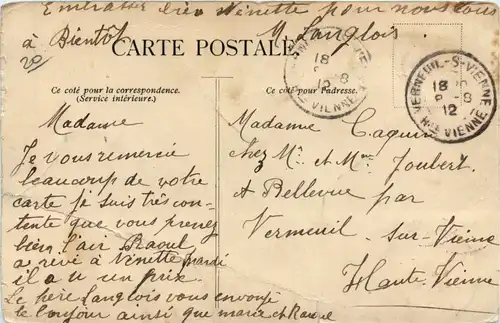 Embrasser bien Ninette pour nous tous
à Bientôt
M Langlois
20
CARTE POSTALE
Ce côté pour la correspondance.
(Service intérieure.)
Ce côté pour l'adresse.
VERNEUIL-S-VIENNE
18
9 - 8
12
Hte VIENNE
18
12
VIENNE
Madame
Je vous remercie
beaucoup de votre
carte je suis très con-
tente que vous prenez
bien l'air Raoul
a rêvé à Ninette mardi
il a u un prix.
Le père Langlois vous envoye
le bonjour ainsi que marie et Raoul
Madame Caquin
chez Mr et Mme Joubert
à Bellevue par
Vermeuil sur-Vienne
Haute-Vienne